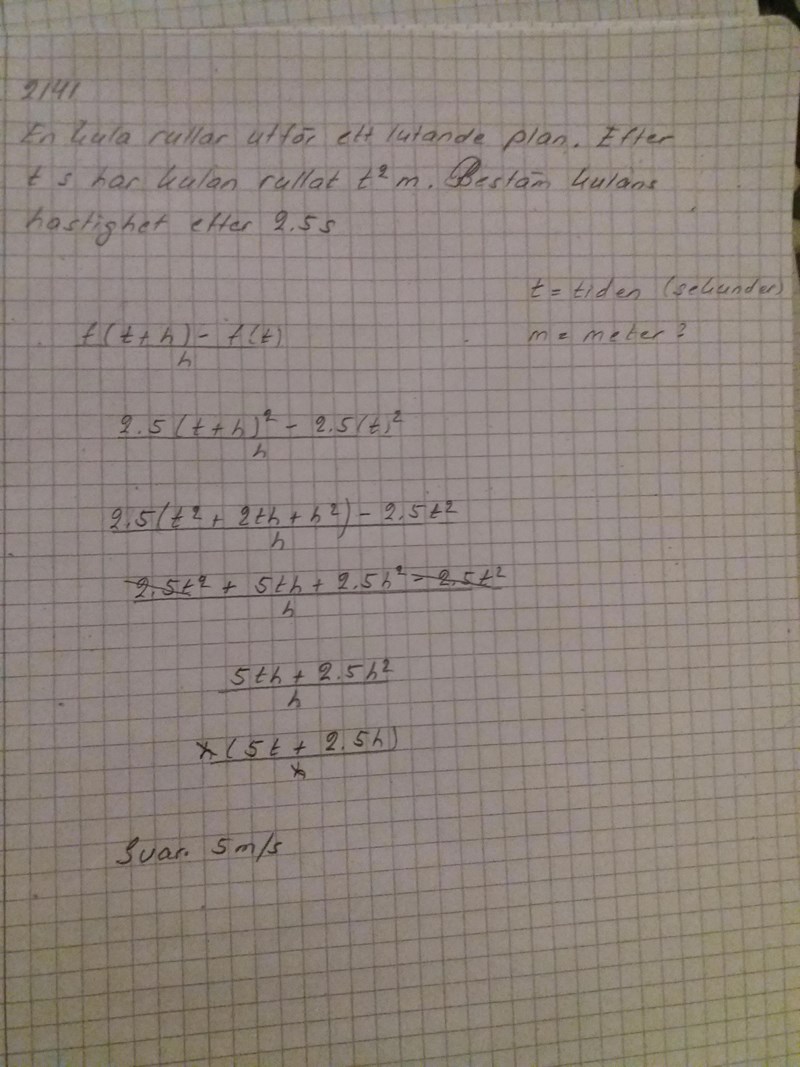 2141
En kula rullar utför ett lutande plan. Efter
t s har kulan rullat t² m. Bestäm kulans
hastighet efter 2.5s
t = tiden (sekunder)
m = meter?
f(t+h) - f(t)
h
2.5(t+h)² - 2.5(t)²
h
2.5(t² + 2th + h²) - 2.5t²
h
2.5t² + 5th + 2.5h² - 2.5t²
h
5th + 2.5h²
h
h(5t + 2.5h)
h
Svar. 5m/s